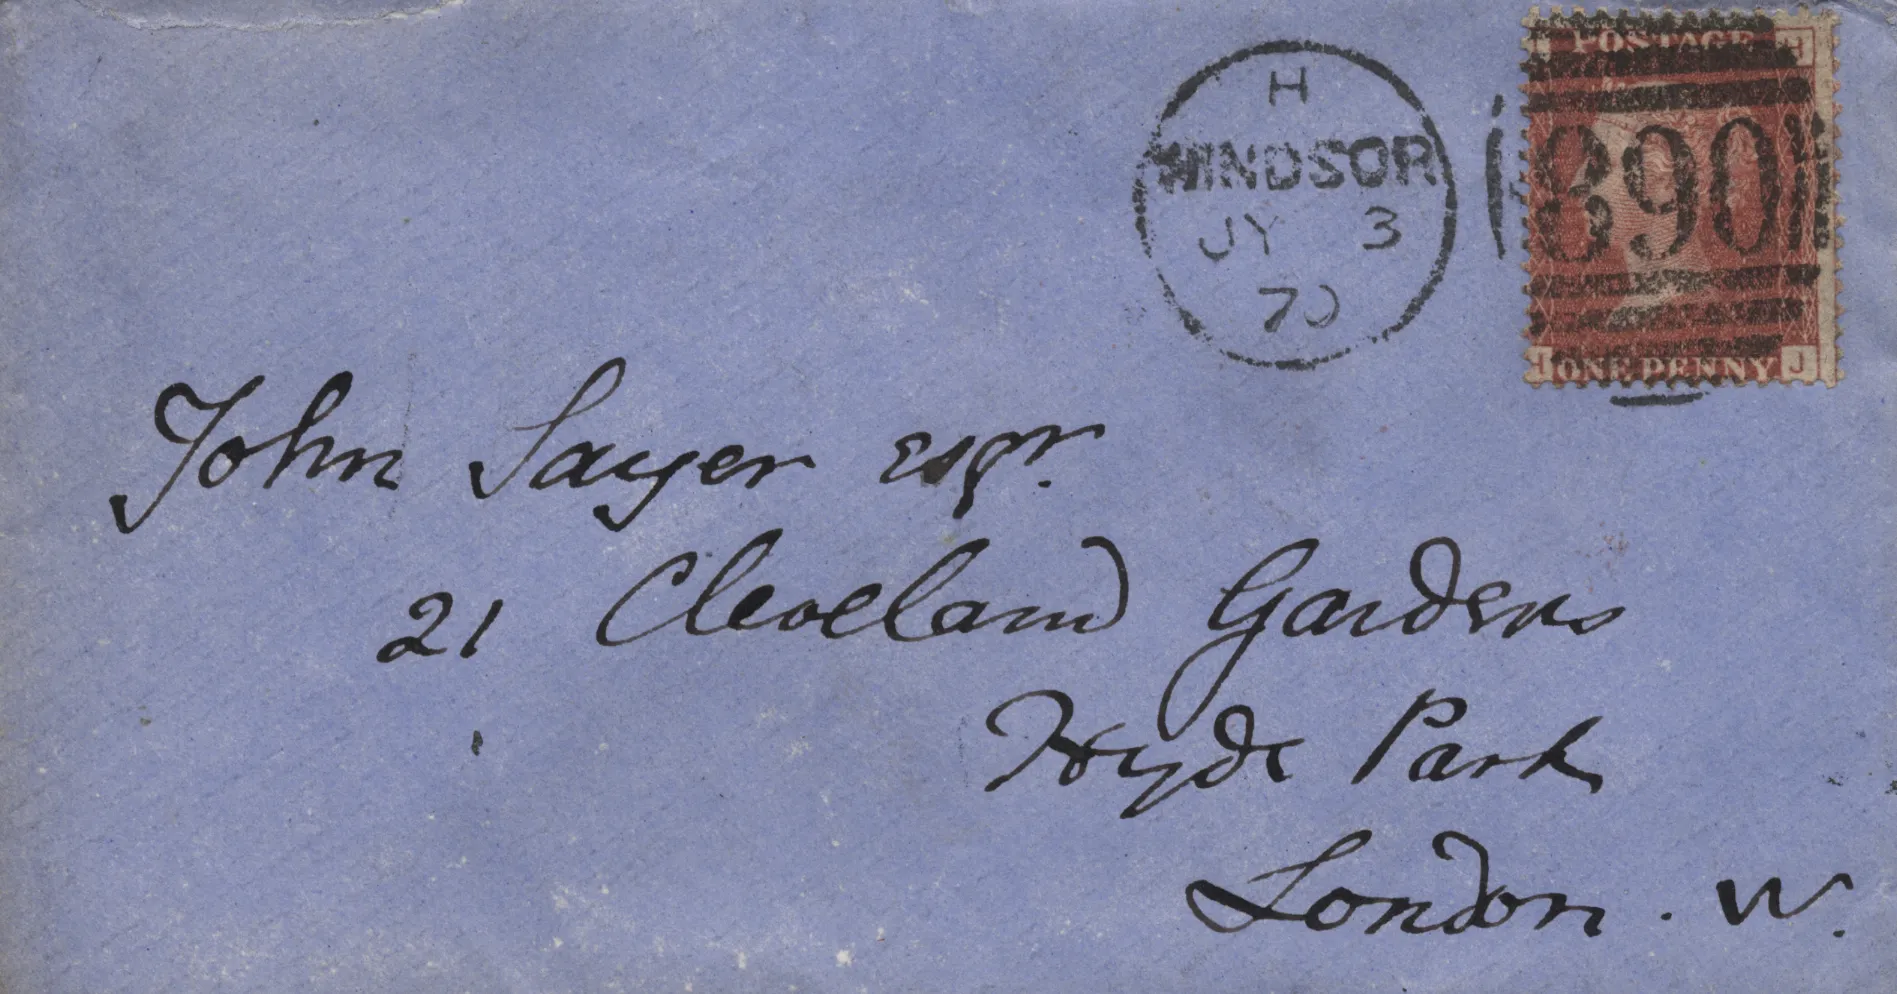 H
WINDSOR
JY 3
70
POSTAGE
890
ONE PENNY J
John Sayer Esqr.
21 Cleveland Gardens
Hyde Park
London . W.